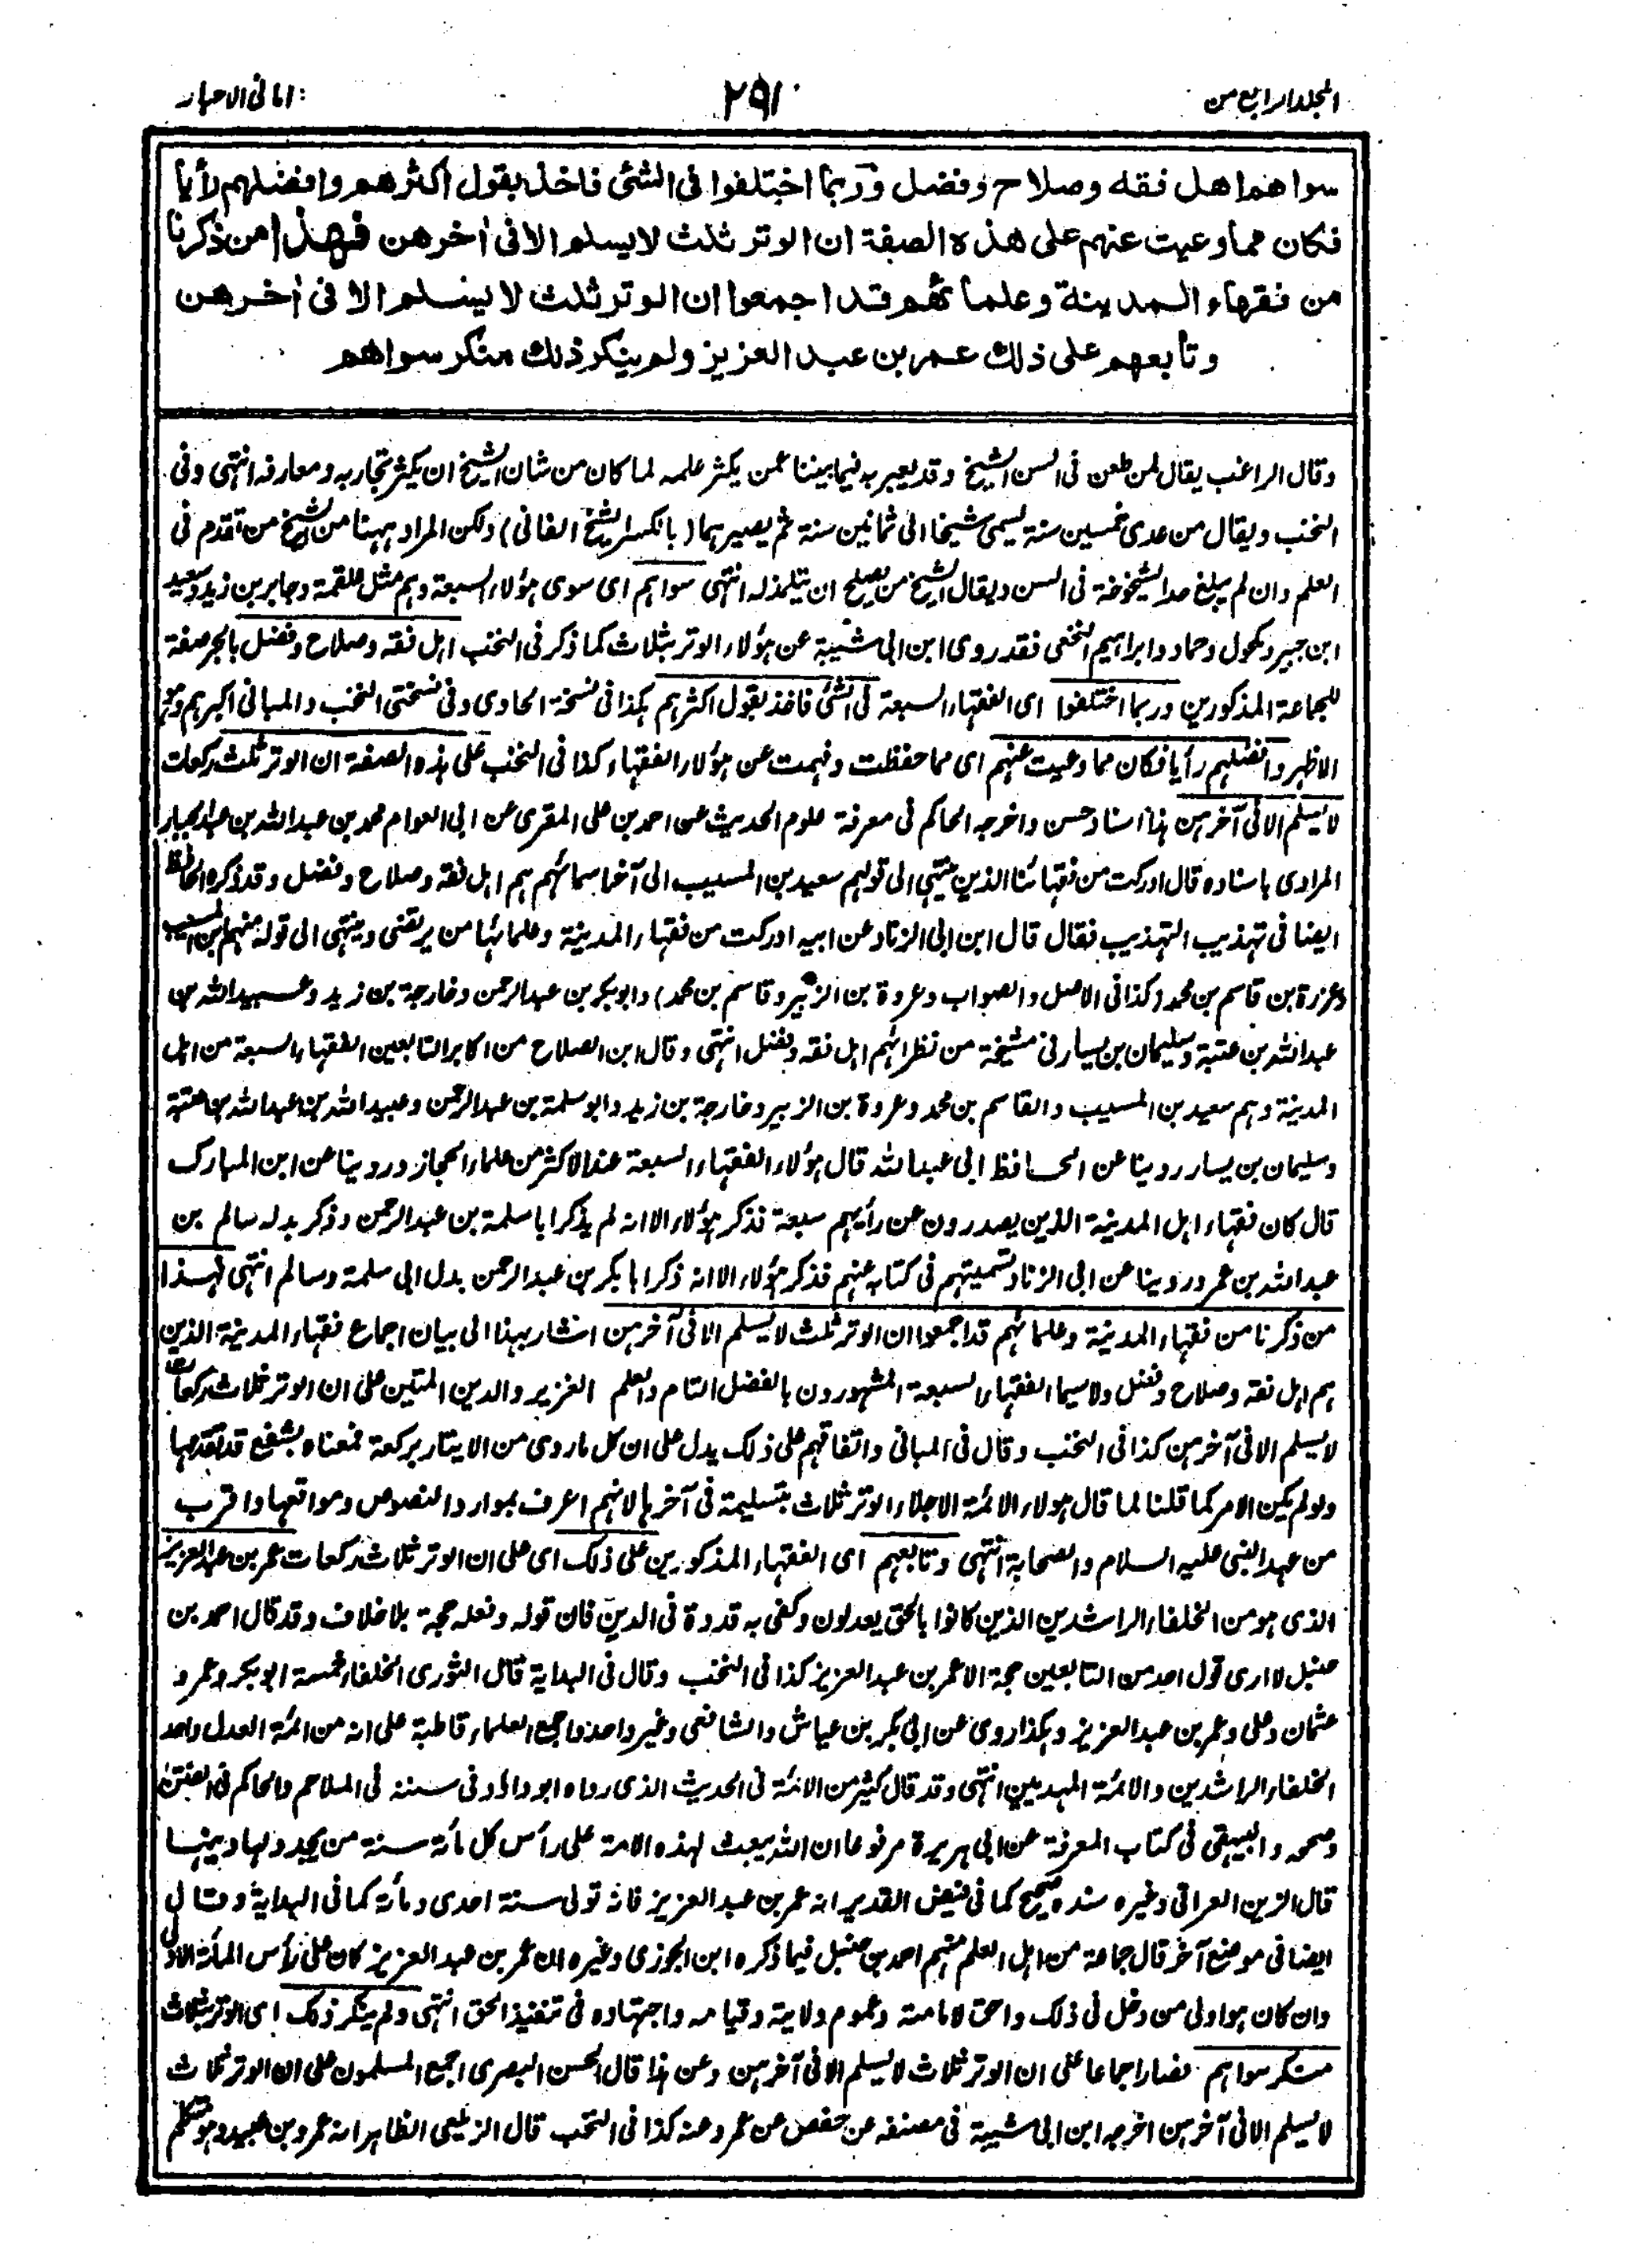 المجلد الرابع من ٢٩١ امانى الاحبار
سواهم اهل فقه وصلاح وفضل وربما اختلفوا فى الشئ فاخذ بقول اكثرهم وافضلهم رأيا
فكان مما وعيت عنهم على هذه الصفة ان الوتر ثلث لا يسلم الا فى أخرهن فهذا من ذكرنا
من فقهاء المدينة وعلمائهم قد اجمعوا ان الوتر ثلث لا يسلم الا فى أخرهن
وتابعهم على ذلك عمر بن عبد العزيز ولم ينكر ذلك منكر سواهم
وقال الراغب يقال لمن طعن فى السن الشيخ وقد يعبر به فيما بيننا عمن يكثر علمه لما كان من شان الشيخ ان يكثر تجاربه ومعارفه انتهى وفى
النخب ويقال من حدى خمسين سنة يسمى شيخا الى ثمانين سنة ثم يصير هما (بالكسر الشيخ الفانى) ولكن المراد ههنا من الشيخ من تقدم فى
العلم وان لم يبلغ حد الشيخوخة فى السن ويقال الشيخ من يصلح ان يتلمذ له انتهى سواهم اى سوى هؤلاء السبعة وهم مثل علقمة وجابر بن زيد وسعيد
ابن جبير ومكحول وحماد وابراهيم النخعى فقد روى ابن ابى شيبة عن هؤلاء الوتر بثلاث كما ذكر فى النخب اهل فقه وصلاح وفضل بالجر صفة
للجماعة المذكورين وربما اختلفوا اى الفقهاء السبعة فى الشئ فاخذ بقول اكثرهم هكذا فى نسخة الحاوى وفى نسختى النخب والمبانى اكبرهم وهو
الاظهر وافضلهم رأيا فكان مما وعيت عنهم اى مما حفظت وفهمت عن هؤلاء الفقهاء كذا فى النخب على هذه الصفة ان الوتر ثلث ركعات
لا يسلم الا فى آخرهن هذا اسناد حسن واخرجه الحاكم فى معرفة علوم الحديث عن احمد بن على المقرى عن ابى العوام محمد بن عبد الله بن عبد الجبار
المرادى باسناده قال ادركت من فقهائنا الذين ينتهى الى قولهم سعيد بن المسيب الى آخر اسمائهم هم اهل فقه وصلاح وفضل وقد ذكره الحافظ
ايضا فى تهذيب التهذيب فقال قال ابن ابى الزناد عن ابيه ادركت من فقهاء المدينة وعلمائها من يرتضى وينتهى الى قوله منهم ابن المسيب
وعزرة بن قاسم بن محمد (كذا فى الاصل والصواب وعروة بن الزبير وقاسم بن محمد) وابو بكر بن عبد الرحمن وخارجة بن زيد وعبيد الله بن
عبد الله بن عتبة وسليمان بن يسار فى مشيخة من نظرائهم اهل فقه وفضل انتهى وقال ابن الصلاح من اكابر التابعين الفقهاء السبعة من اهل
المدينة وهم سعيد بن المسيب والقاسم بن محمد وعروة بن الزبير وخارجة بن زيد وابو سلمة بن عبد الرحمن وعبيد الله بن عبد الله بن عتبة
وسليمان بن يسار روينا عن الحافظ ابى عبد الله قال هؤلاء الفقهاء السبعة عند الاكثر من علماء الحجاز وروينا عن ابن المبارك
قال كان فقهاء اهل المدينة الذين يصدرون عن رأيهم سبعة فذكر هؤلاء الا انه لم يذكر ابا سلمة بن عبد الرحمن وذكر بدله سالم بن
عبد الله بن عمر وروينا عن ابى الزناد تسميتهم فى كتابه عنهم فذكر هؤلاء الا انه ذكر ابا بكر بن عبد الرحمن بدل ابى سلمة وسالم انتهى فهذا
من ذكرنا من فقهاء المدينة وعلمائهم قد اجمعوا ان الوتر ثلث لا يسلم الا فى آخرهن اشار بهذا الى بيان اجماع فقهاء المدينة الذين
هم اهل فقه وصلاح وفضل ولا سيما الفقهاء السبعة المشهورون بالفضل التام والعلم الغزير والدين المتين على ان الوتر ثلاث ركعات
لا يسلم الا فى آخرهن كذا فى النخب وقال فى المبانى واتفاقهم على ذلك يدل على ان كل ما روى من الايتار بركعة فمعناه بشفع قد تقدمها
ولو لم يكن الامر كما قلنا لما قال هولاء الائمة الاجلاء الوتر ثلاث بتسليمة فى آخرها لانهم اعرف بموارد النصوص ومواقعها واقرب
من عهد النبى عليه السلام والصحابة انتهى وتابعهم اى الفقهاء المذكورين على ذلك اى على ان الوتر ثلاث ركعات عمر بن عبد العزيز
الذى هو من الخلفاء الراشدين الذين كانوا بالحق يعدلون وكفى به قدوة فى الدين فان قوله وفعله حجة بلا خلاف وقد قال احمد بن
حنبل لا ارى قول احد من التابعين حجة الا عمر بن عبد العزيز كذا فى النخب وقال فى البداية قال الثورى الخلفاء خمسة ابو بكر وعمر و
عثمان وعلى وعمر بن عبد العزيز وهكذا روى عن ابى بكر بن عياش والشافعى وغير واحد واجمع العلماء قاطبة على انه من ائمة العدل واحد
الخلفاء الراشدين والائمة المهديين انتهى وقد قال كثير من الائمة فى الحديث الذى رواه ابو داؤد فى سننه فى الملاحم والحاكم فى الفتن
وصححه والبيهقى فى كتاب المعرفة عن ابى هريرة مرفوعا ان الله يبعث لهذه الامة على رأس كل مأة سنة من يجدد لها دينها
قال الزين العراقى وغيره سنده صحيح كما فى فيض القدير انه عمر بن عبد العزيز فانه تولى سنة احدى ومأة كما فى البداية وقال
ايضا فى موضع آخر قال جماعة من اهل العلم منهم احمد بن حنبل فيما ذكره ابن الجوزى وغيره ان عمر بن عبد العزيز كان على رأس المأة الاولى
وان كان هو اولى من دخل فى ذلك واحق لامامته وعموم ولايته وقيامه واجتهاده فى تنفيذ الحق انتهى ولم ينكر ذلك اى الوتر بثلاث
منكر سواهم فصار اجماعا على ان الوتر ثلاث لا يسلم الا فى آخرهن وعن هذا قال الحسن البصرى اجمع المسلمون على ان الوتر ثلاث
لا يسلم الا فى آخرهن اخرجه ابن ابى شيبة فى مصنفه عن حفص عن عمرو عنه كذا فى النخب قال الزيلعى الظاهر انه عمرو بن عبيد وهو متكلم